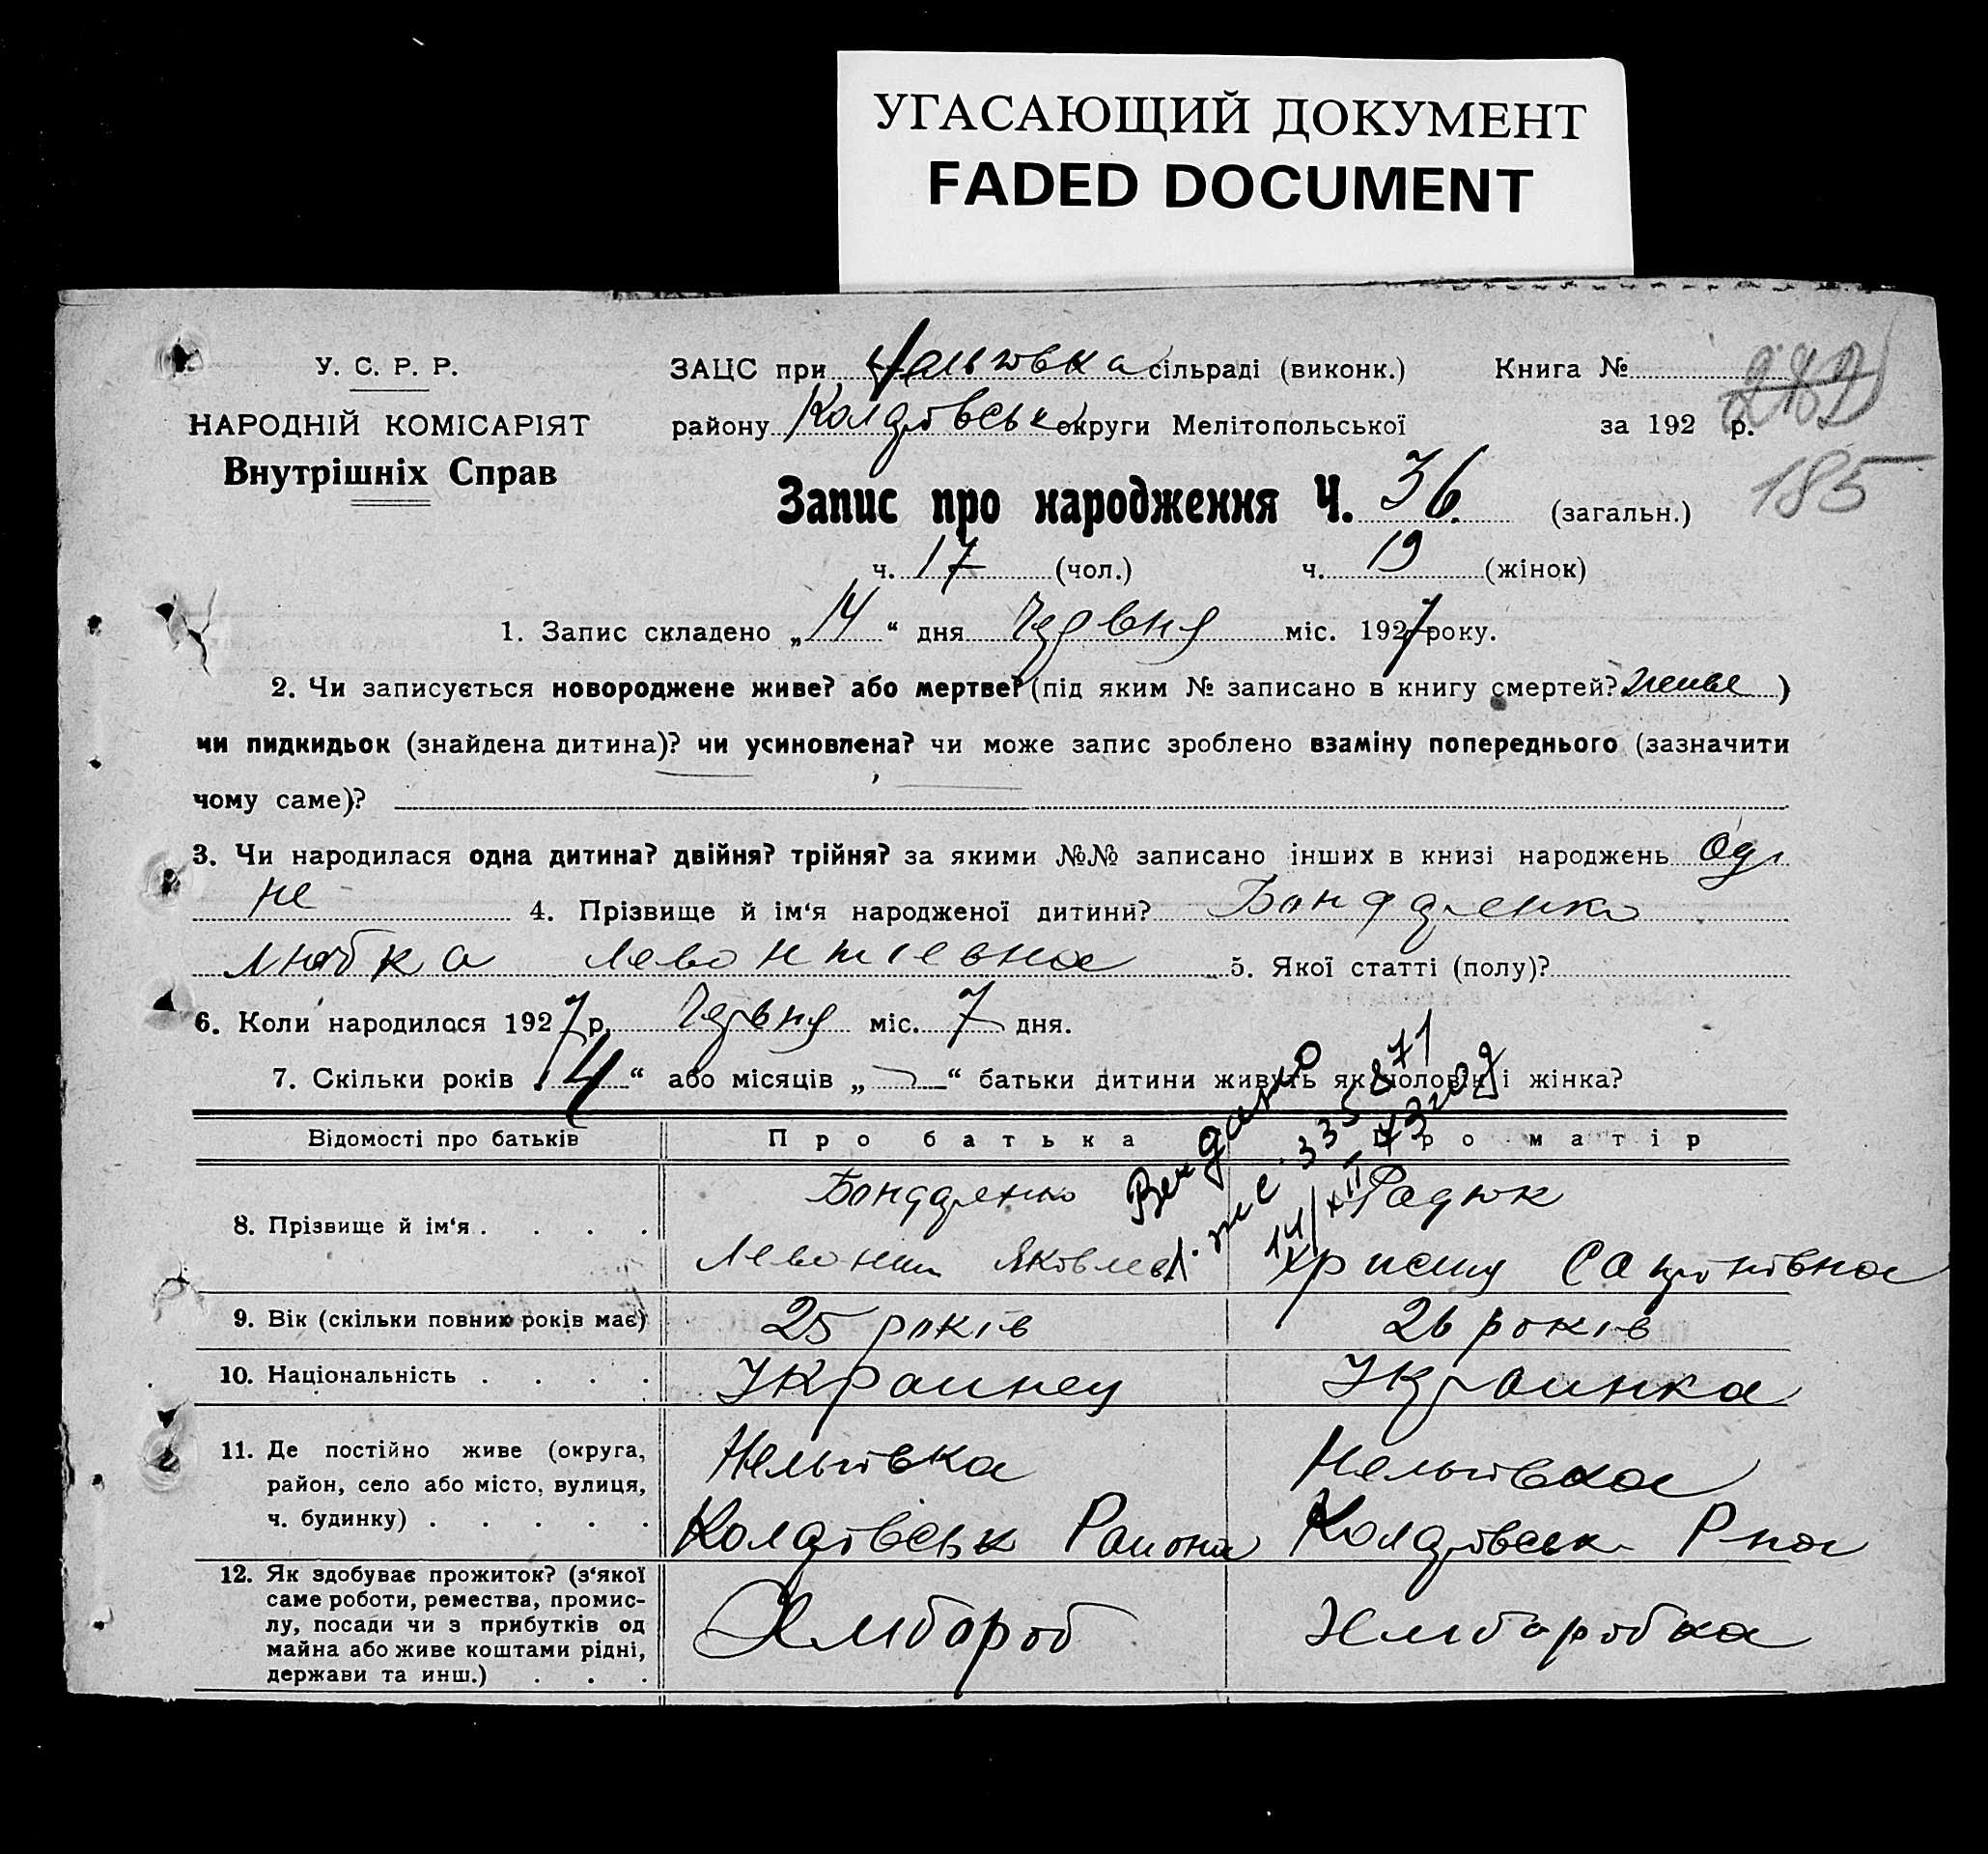 УГАСАЮЩИЙ ДОКУМЕНТ
FADED DOCUMENT
У. С. Р. Р.
НАРОДНІЙ КОМІСАРІЯТ
Внутрішніх Справ
ЗАЦС при Нельговка сільраді (виконк.) Книга №
району округи Мелітопольської за 192 р.
185
Запис про народження Ч. 36 (загальн.)
ч. 17 (чол.) ч. 19 (жінок)
1. Запис складено „14“ дня Червня міс. 1927 року.
2. Чи записується новороджене живе? або мертве? (під яким № записано в книгу смертей? живе)
чи пидкидьок (знайдена дитина)? чи усиновлена? чи може запис зроблено взаміну попереднього (зазначити
чому саме)?
3. Чи народилася одна дитина? двійня? трійня? за якими №№ записано інших в книзі народжень Од
не 4. Прізвище й ім‘я народженої дитини? Бондаренко
Любка Левонтіевна 5. Якої статті (полу)?
6. Коли народилося 1927 р. Червня міс. 7 дня.
7. Скільки років „4“ або місяців „—“ батьки дитини живуть як чоловік і жінка?
Відомості про батьків Про батька Про матір
8. Прізвище й ім‘я . . . . Бондаренко Радюк
Левонти Яковлев Христя
9. Вік (скільки повних років має) 25 років 26 років
10. Національність . . . . Украинец Украинка
11. Де постійно живе (округа,
район, село або місто, вулиця,
ч. будинку) . . . . .
Нельговка Нельговка
Района Р-на
12. Як здобуває прожиток? (з‘якої
саме роботи, ремества, промис-
лу, посади чи з прибутків од
майна або живе коштами рідні,
держави та инш.) . . .
Хлибороб Хлиборобка
335871
14/XII 73 год